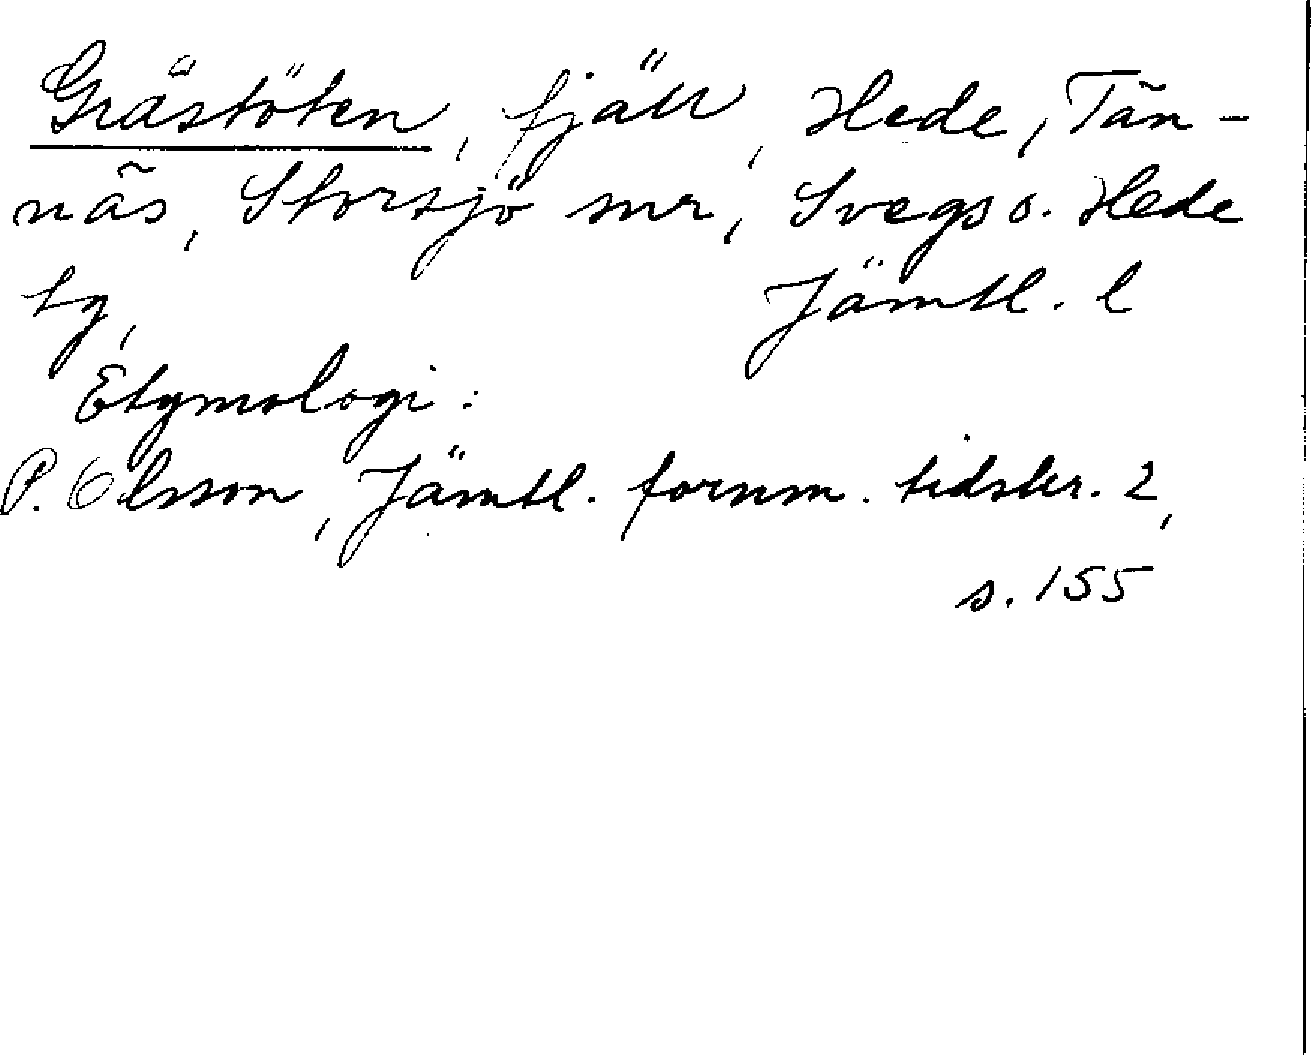 Grästöten, fjäll, Hede, Tän-
näs, Storsjö snr, Svegs o. Hede
tg, Jämtl. l
Etymologi:
P. Olsson, Jämtl. fornm. tidskr. 2,
s. 155